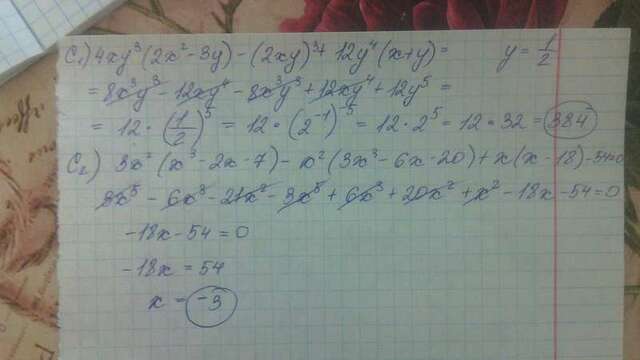 С₁) 4xy³(2x² - 3y) - (2xy)³ + 12y⁴(x+y) = y = 1/2
= 8x³y³ - 12xy⁴ - 8x³y³ + 12xy⁴ + 12y⁵ =
= 12 · (1/2)⁵ = 12 · (2⁻¹)⁻⁵ = 12 · 2⁵ = 12 · 32 = 384
С₂) 3x²(x³ - 2x - 7) - x²(3x³ - 6x - 20) + x(x - 18) - 54=0
3x⁵ - 6x³ - 21x² - 3x⁵ + 6x³ + 20x² + x² - 18x - 54 = 0
-18x - 54 = 0
-18x = 54
x = -3